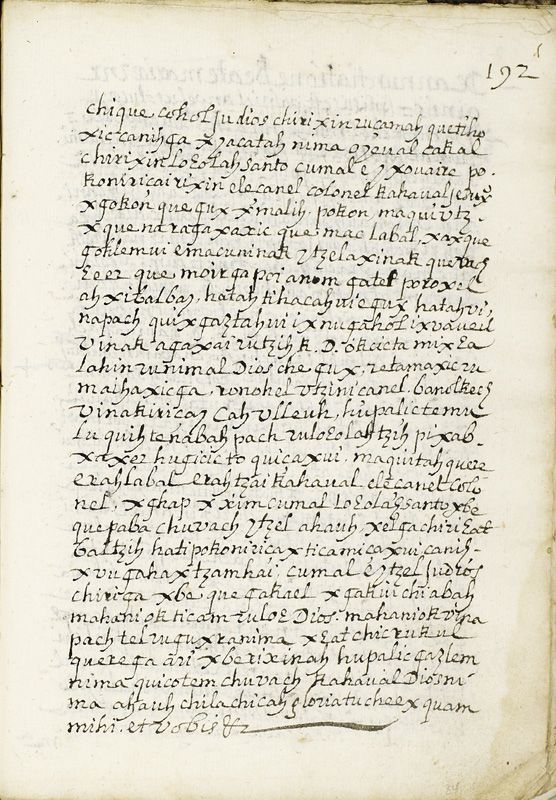 192
chique cohol judios chiri xin rucamah quitiho
xic canih ga xyacatah nima oyeval cakal
chiri xin loEolah santo cumal ey xovaire po-
koniricairixin elecanel colonel kahaval Jesux
x gokon que gux x malih, pokon maqui utz-
x que na raga xaxic que mac labal, xaxque
goklem vi e macuninak ytzelaxinak que
que moirga poi anom gatel poroxel
ah xibalbay, hatah tihacah vi e gux hatah vi,
napach qui x gaztah vi ix nugahol ix vaveil
vinak aga xai rutzih k. D. mixEa
lahin runimal Dios che gux, retamaxic ru
maihaxic ga, ronohel utzinicanel, banol kech
vinakiricay Cah Ulleuh, hupalic temu
lu quihtenabah pach ruloEolah tzih pixab-
xaxer hugicic to quicaxui, maquitah quere
erah labal erah tzai kahaval elecanel Colo
nel, x ghap x xim cumal LoEolah santo xbe
que paba chuvach ytzel ahauh, xelga chiri Eat
bal tzih hati pokonirica x ticamica xui canih-
x vugaha x tzamhai, cumal e ytzel Judios
chiriga xbe que gakael x gakui chi abah
mahaniok ticam ruloE Dios, mahaniok vina
pach tel rugux ranima x Eat chic rukul
querega ari xberixinah hupalic gazlem
nima quicotem chuvach kahaval Dios ni
ma ahauh chila chicah gloria tucheex quam
mihi, et vobis &c